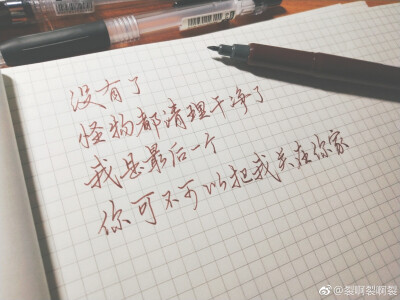 没有了
怪物都清理干净了
我是最后一个
你可不可以把我关在你家
@裂啊裂啊裂